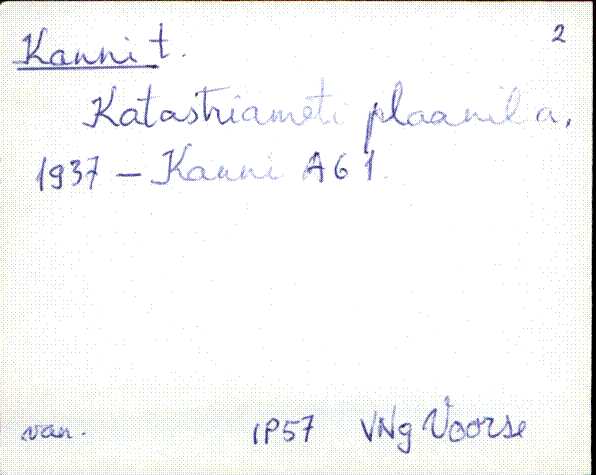 Kanni t. 2
Katastriameti plaanil a.
1937 – Kanni A 6 1.
van. IP57 VNg Voorse